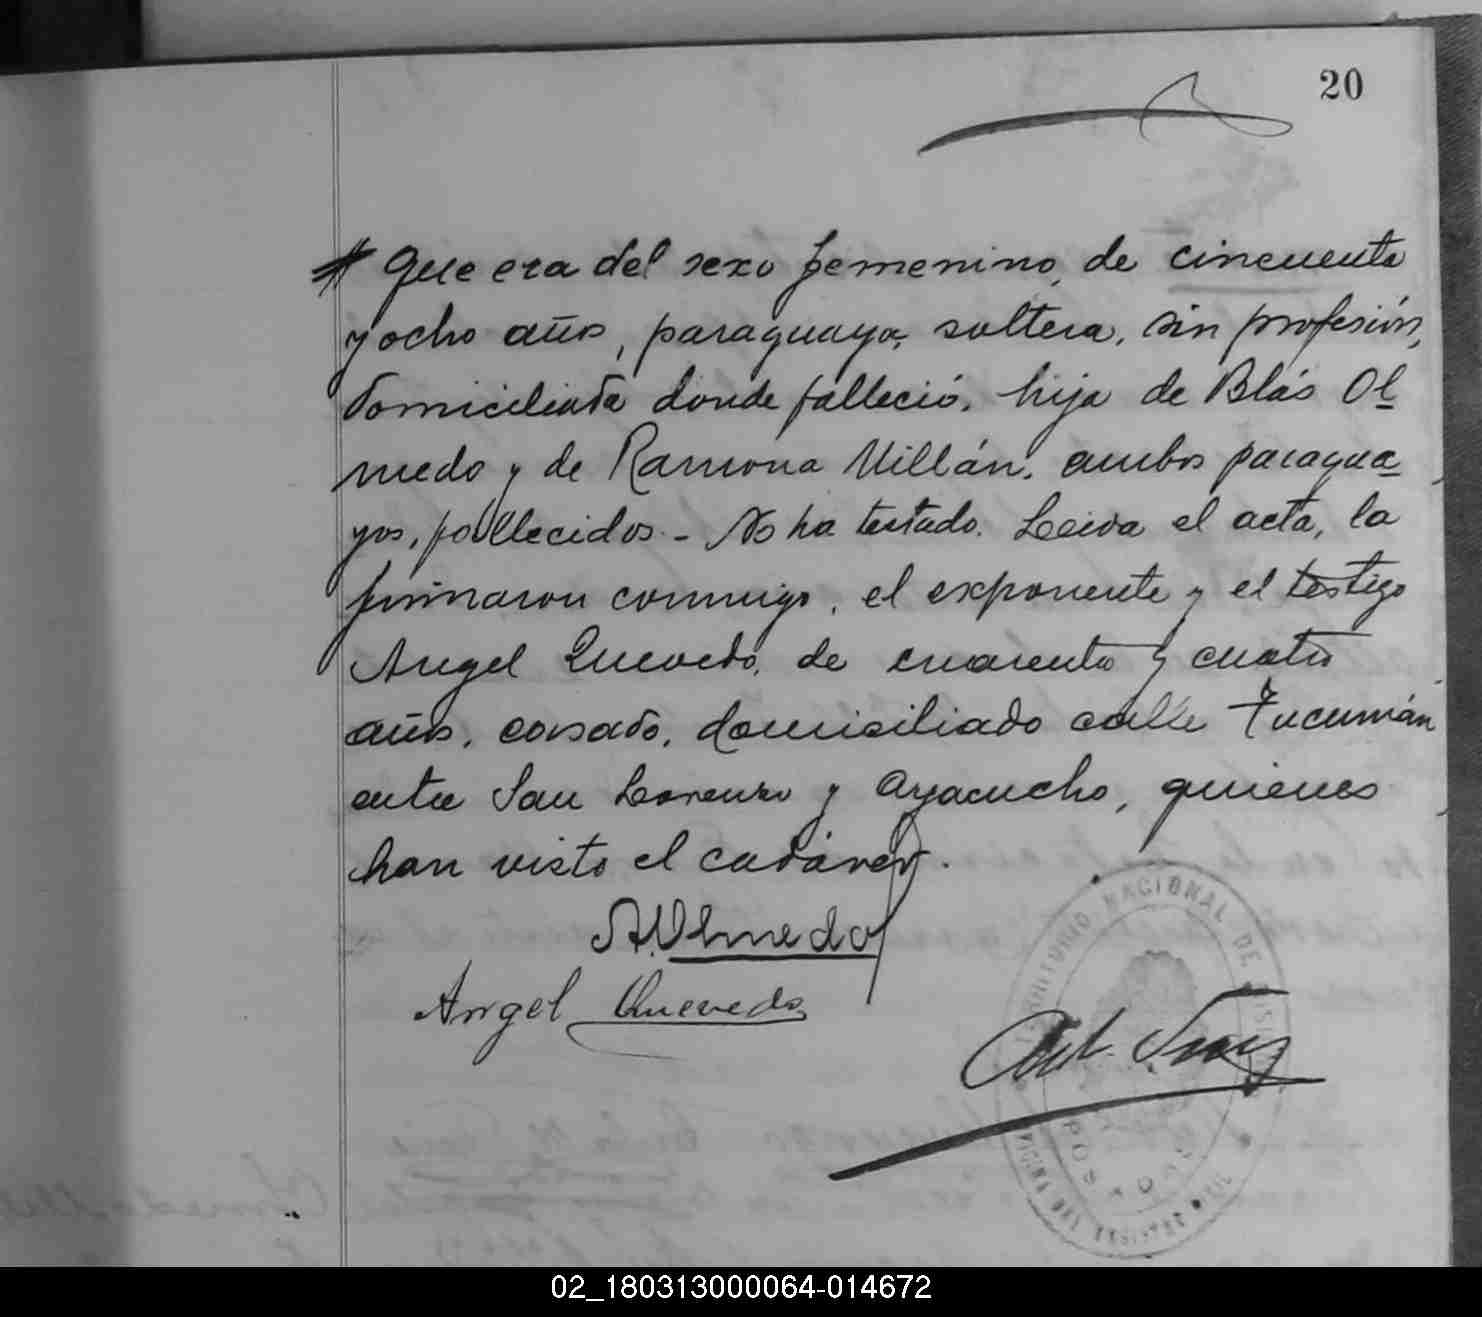 20
# Que era del sexo femenino, de cincuenta
y ocho años, paraguaya, soltera, sin profesión,
domiciliada donde falleció, hija de Blás Ol
medo y de Ramona Millán, ambos paragua
yos, fallecidos.- No ha testado. Leida el acta, la
firmaron conmigo, el exponente y el testigo
Angel Quevedo, de cuarenta y cuatro
años, casado, domiciliado calle Tucumán
entre San Lorenzo y Ayacucho, quienes
han visto el cadáver.
A. Olmedo
Angel Quevedo
TERRITORIO NACIONAL DE MISIONES
POSADAS
OFICINA DEL REGISTRO CIVIL
02_180313000064-014672